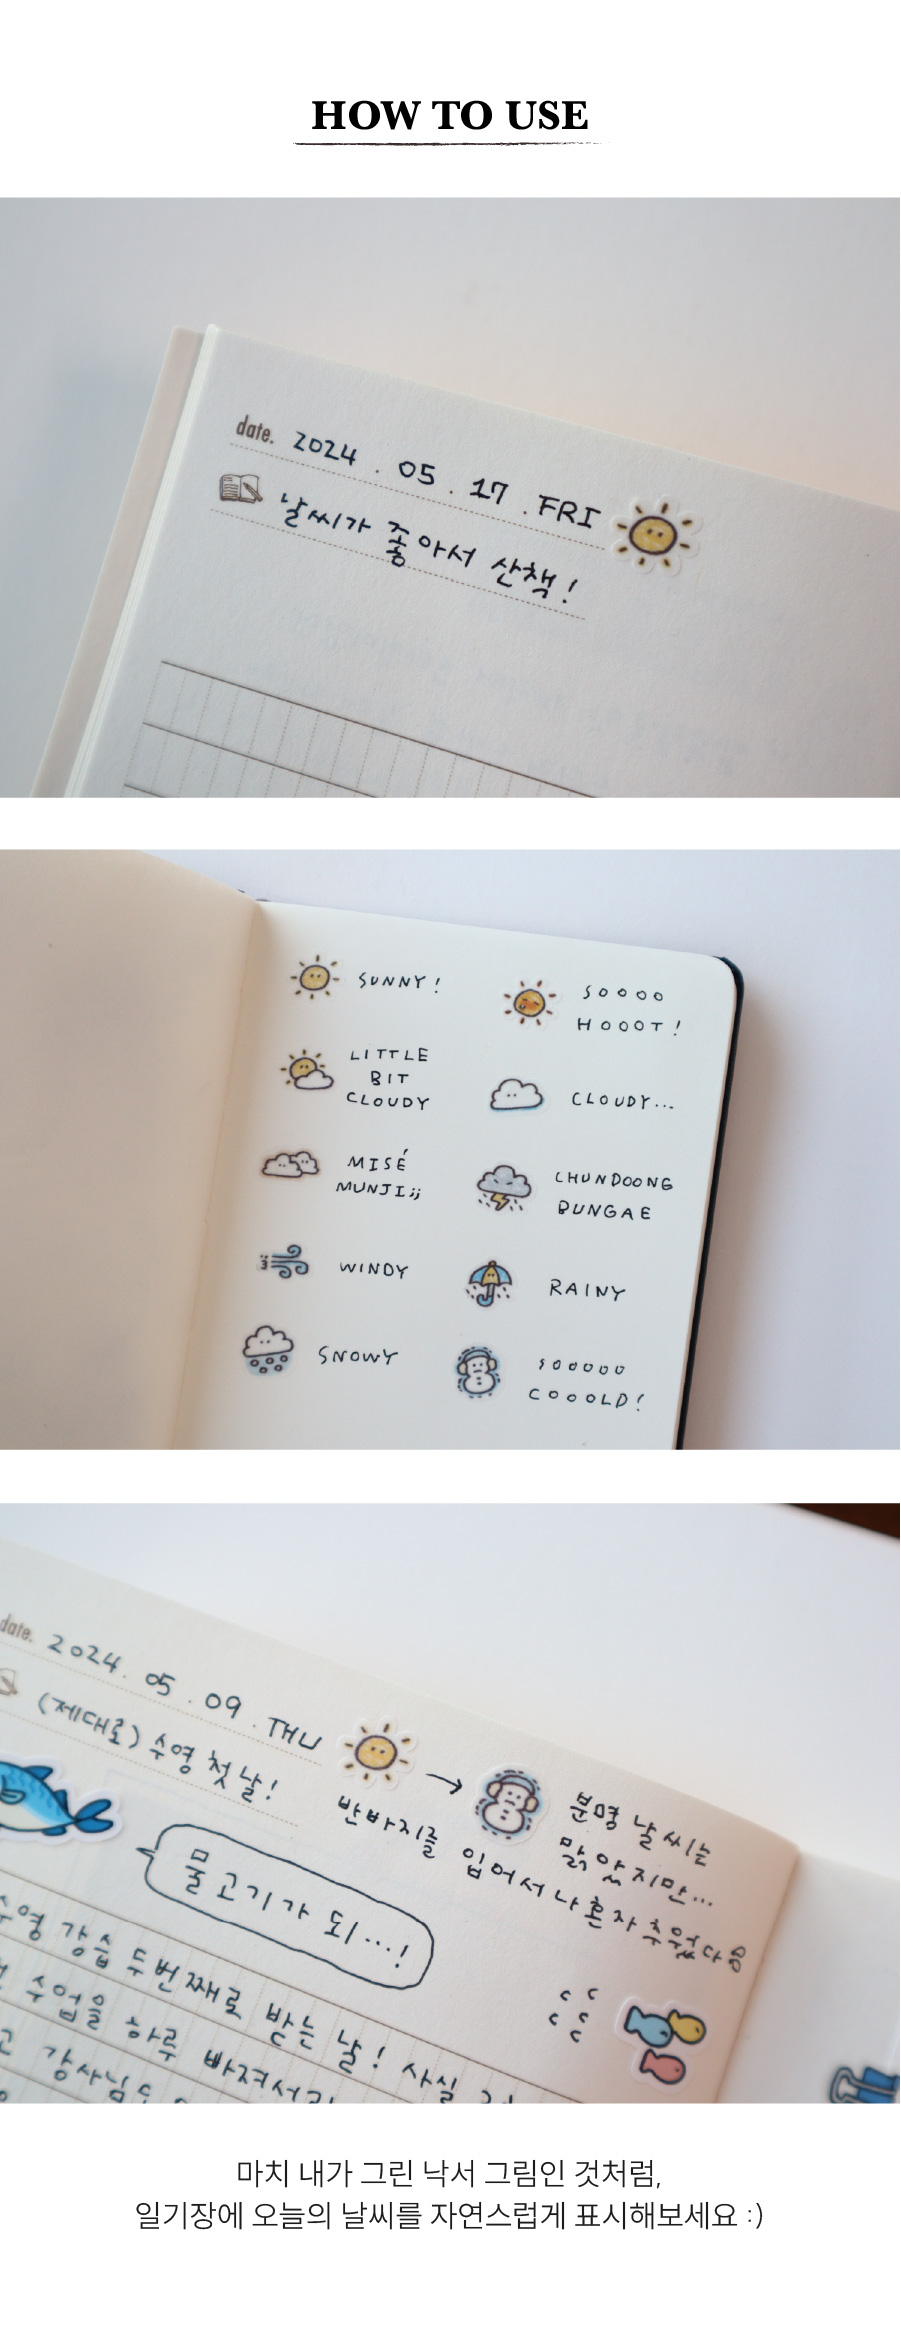 HOW TO USE
date. 2024 . 05 . 17 . FRI
날씨가 좋아서 산책!
SUNNY!
SOOOO
HOOOT!
LITTLE
BIT
CLOUDY
CLOUDY...
MISÉ
MUNJI;;
CHUNDOONG
BUNGAE
WINDY
RAINY
SNOWY
SOOOOO
COOOLD!
date. 2024. 05 . 09 . THU
(제대로) 수영 첫날!
분명 날씨는
맑았지만...
반바지를 입어서 나 혼자 추웠다옹
물고기가 되...!
수영 강습 두번째로 받는 날! 사실
수업을 하루 빠져서
강사님
마치 내가 그린 낙서 그림인 것처럼,
일기장에 오늘의 날씨를 자연스럽게 표시해보세요 :)